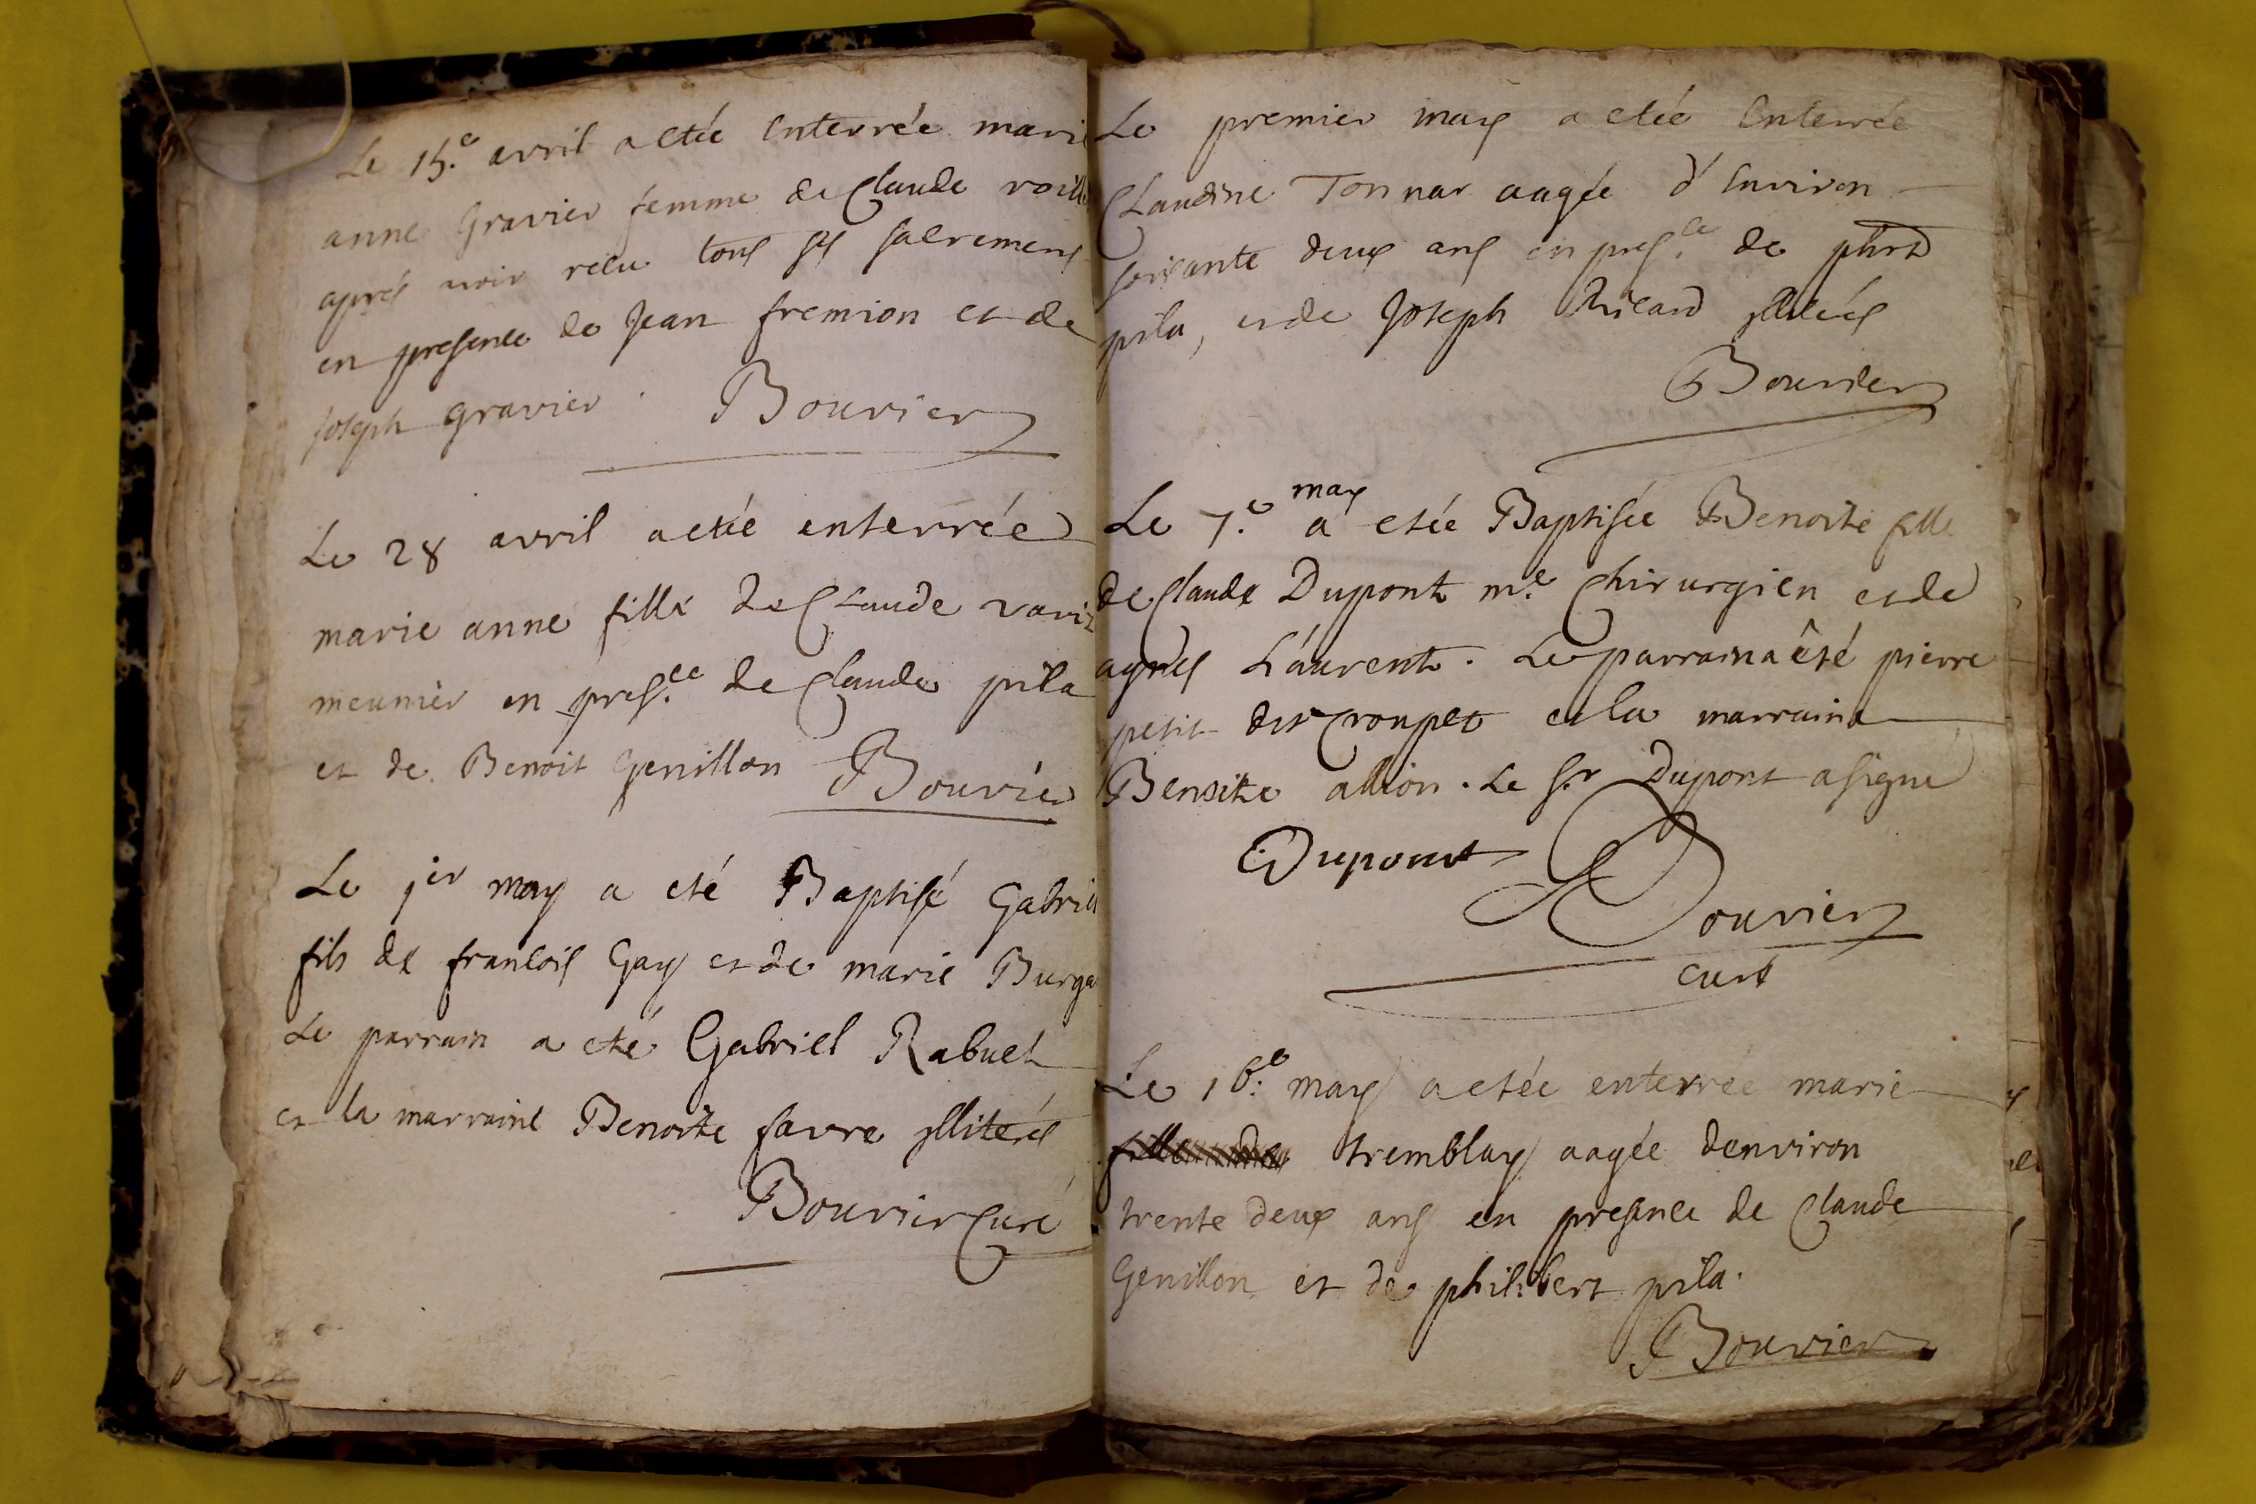 Le 15.e avril a etée Enterrée mari
anne Gravier femme de Claude
aprés avoir recu tous ses sacremens
en presence de Jean fremion et de
Joseph Gravier. Bouvier
Le 28 avril a etée enterrée
marie anne fille de Claude
meunier en pres.ce de Claude pila
et de Benoit Genillon Bouvier
Le 1er may a eté Baptisé Gabriel
fils de francois Gay et de marie Burga
Le parrain a eté Gabriel Rabuet
et la marraine Benoite favre illiterés
Bouvier Curé
Le premier may a etée Enterrée
Claudine Tonnar aagée d'Environ
soixante deux ans en pres.ce de phrt
pila, et de Joseph Ricard
Bouvier
Le 7.e may a etée Baptisée Benoite fille
de Claude Dupont m.e Chirurgien et de
agnes Laurent. Le parrain a êté pierre
petit dit Croupet et la marraine
Benoite allion. Le S.r Dupont a signé
Dupont
Bouvier
curé
Le 16.e may a etée enterrée marie
fille de tremblay aagée denviron
trente deux ans en presance de Claude
Genillon et de philibert pila.
Bouvier